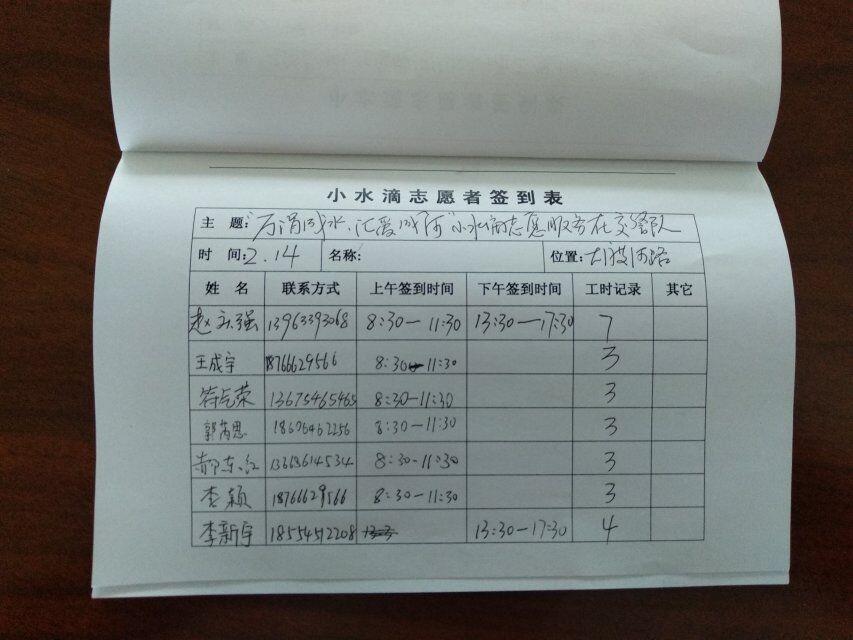 小水滴志愿者签到表
主 题:"万涓成水、汇爱成河"小水滴志愿服务在交警队
时 间:2.14 名称: 位置:大渡河路
姓 名 联系方式 上午签到时间 下午签到时间 工时记录 其它
赵 强 13963393068 8:30—11:30 13:30—17:30 7
王成宇 18766629566 8:30—11:30 3
荣 13675465465 8:30—11:30 3
郭芮思 18606462256 8:30—11:30 3
郝东红 13636614534 8:30—11:30 3
李颖 18766629566 8:30—11:30 3
李新宇 18554512208 13:30—17:30 4